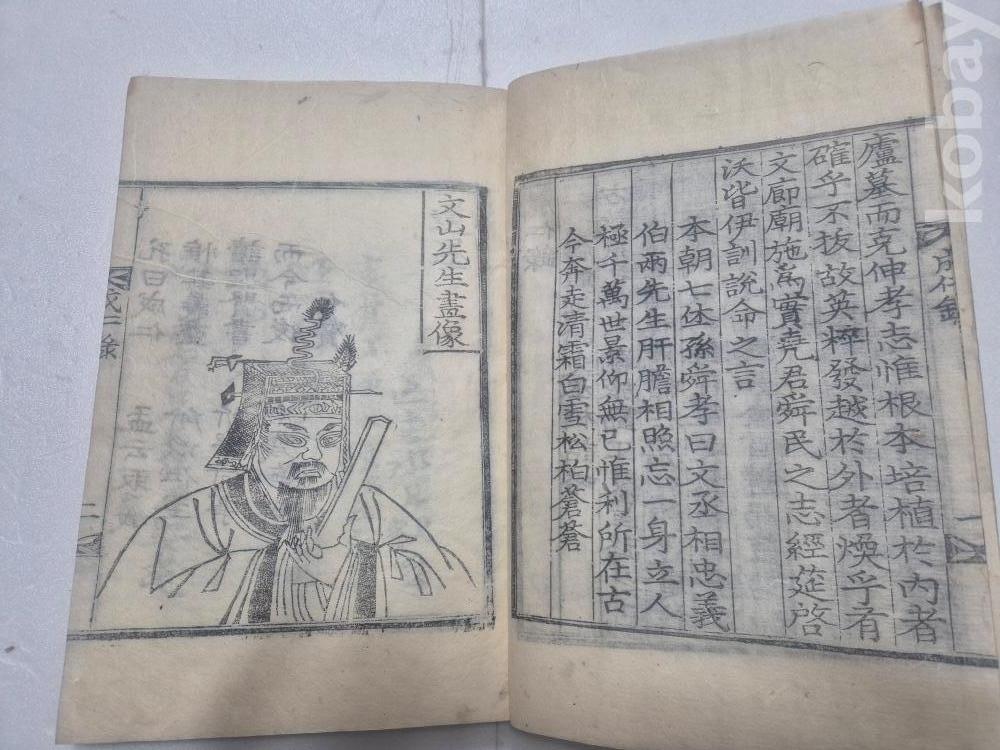 廬墓而克伸孝志惟根本培植於內者
確乎不拔故英粹發越於外者煥乎有
文廊廟施爲實堯君舜民之志經筵啓
沃皆伊訓說命之言
本朝七休孫舜孝曰文丞相忠義
伯兩先生肝膽相照忘一身立人
極千萬世景仰無已惟利所在古
今奔走清霜白雪松柏蒼蒼
成仁錄
一
文山先生畫像
孔曰成仁
孟云取
二
kobay